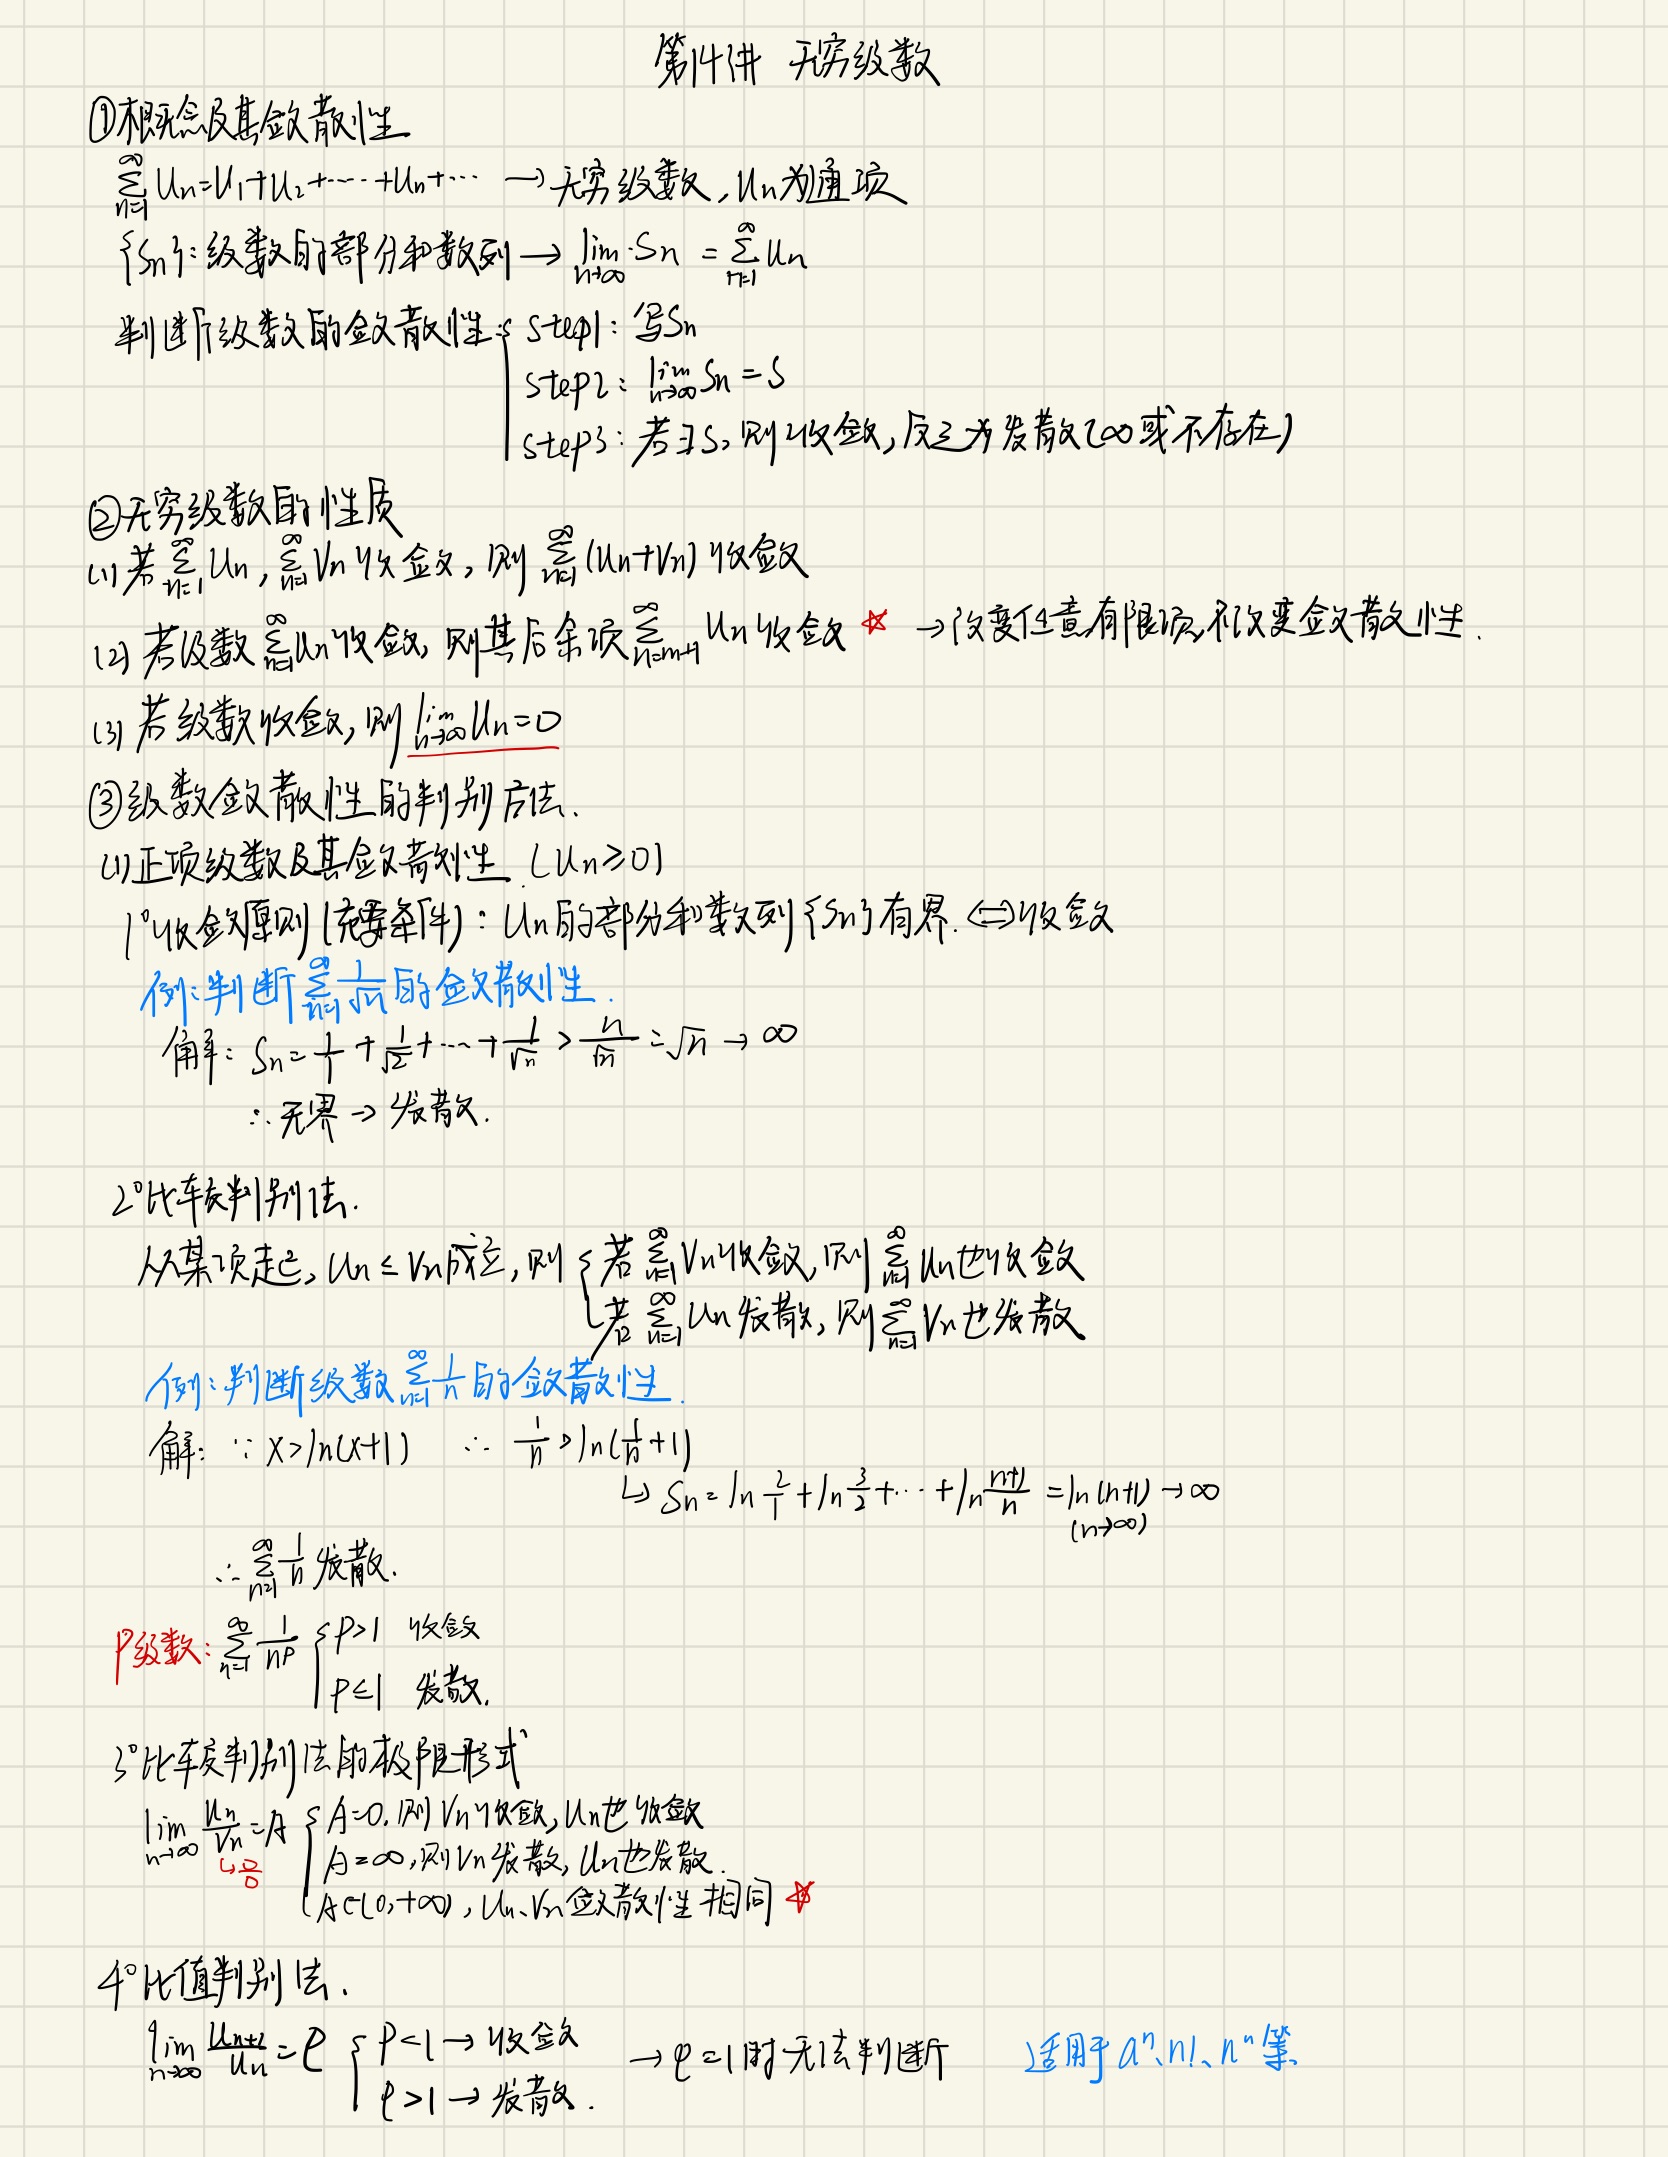 第14讲 无穷级数
①概念及其敛散性
∑_{n=1}^{∞} Un=U1+U2+……+Un+… → 无穷级数,Un为通项
{Sn}:级数的部分和数列 → lim_{n→∞} Sn = ∑_{n=1}^{∞} Un
判断级数的敛散性:{ step1: 写Sn
step2: lim_{n→∞} Sn = S
step3: 若∃S,则收敛,反之为发散(∞或不存在)
②无穷级数的性质
(1) 若 ∑_{n=1}^{∞} Un, ∑_{n=1}^{∞} Vn 收敛,则 ∑_{n=1}^{∞} (Un+Vn) 收敛
(2) 若级数 ∑_{n=1}^{∞} Un 收敛,则其后余项 ∑_{n=m+1}^{∞} Un 收敛 ☆ → 改变任意有限项,不改变敛散性.
(3) 若级数收敛,则 lim_{n→∞} Un=0
③级数敛散性的判别方法.
(1)正项级数及其敛散性.(Un≥0)
1°收敛原则(充要条件):Un的部分和数列{Sn}有界.⇔收敛
例:判断 ∑_{n=1}^{∞} 1/√n 的敛散性.
解: Sn = 1/1 + 1/√2 + … + 1/√n > n/√n = √n → ∞
∴无界 → 发散.
2°比较判别法.
从某项走起,Un ≤ Vn成立,则 { 若 ∑_{n=1}^{∞} Vn收敛,则 ∑_{n=1}^{∞} Un也收敛
若 ∑_{n=1}^{∞} Un发散,则 ∑_{n=1}^{∞} Vn也发散
例:判断级数 ∑_{n=1}^{∞} 1/n 的敛散性.
解: ∵ x>ln(x+1) ∴ 1/n > ln(1/n+1)
↳ Sn = ln 2/1 + ln 3/2 + … + ln (n+1)/n = ln(n+1) → ∞
(n→∞)
∴ ∑_{n=1}^{∞} 1/n 发散.
P级数: ∑_{n=1}^{∞} 1/n^p { p>1 收敛
p≤1 发散.
3°比较判别法的极限形式
lim_{n→∞} Un/Vn = A { A=0,则Vn收敛,Un也收敛
↳ 0/0
A=∞,则Vn发散,Un也发散.
A∈(0,+∞),Un、Vn敛散性相同 ☆
4°比值判别法.
lim_{n→∞} Un+1/Un = ρ { ρ<1 → 收敛 → ρ=1时无法判断 适用于 a^n、n!、n^n 等
ρ>1 → 发散.